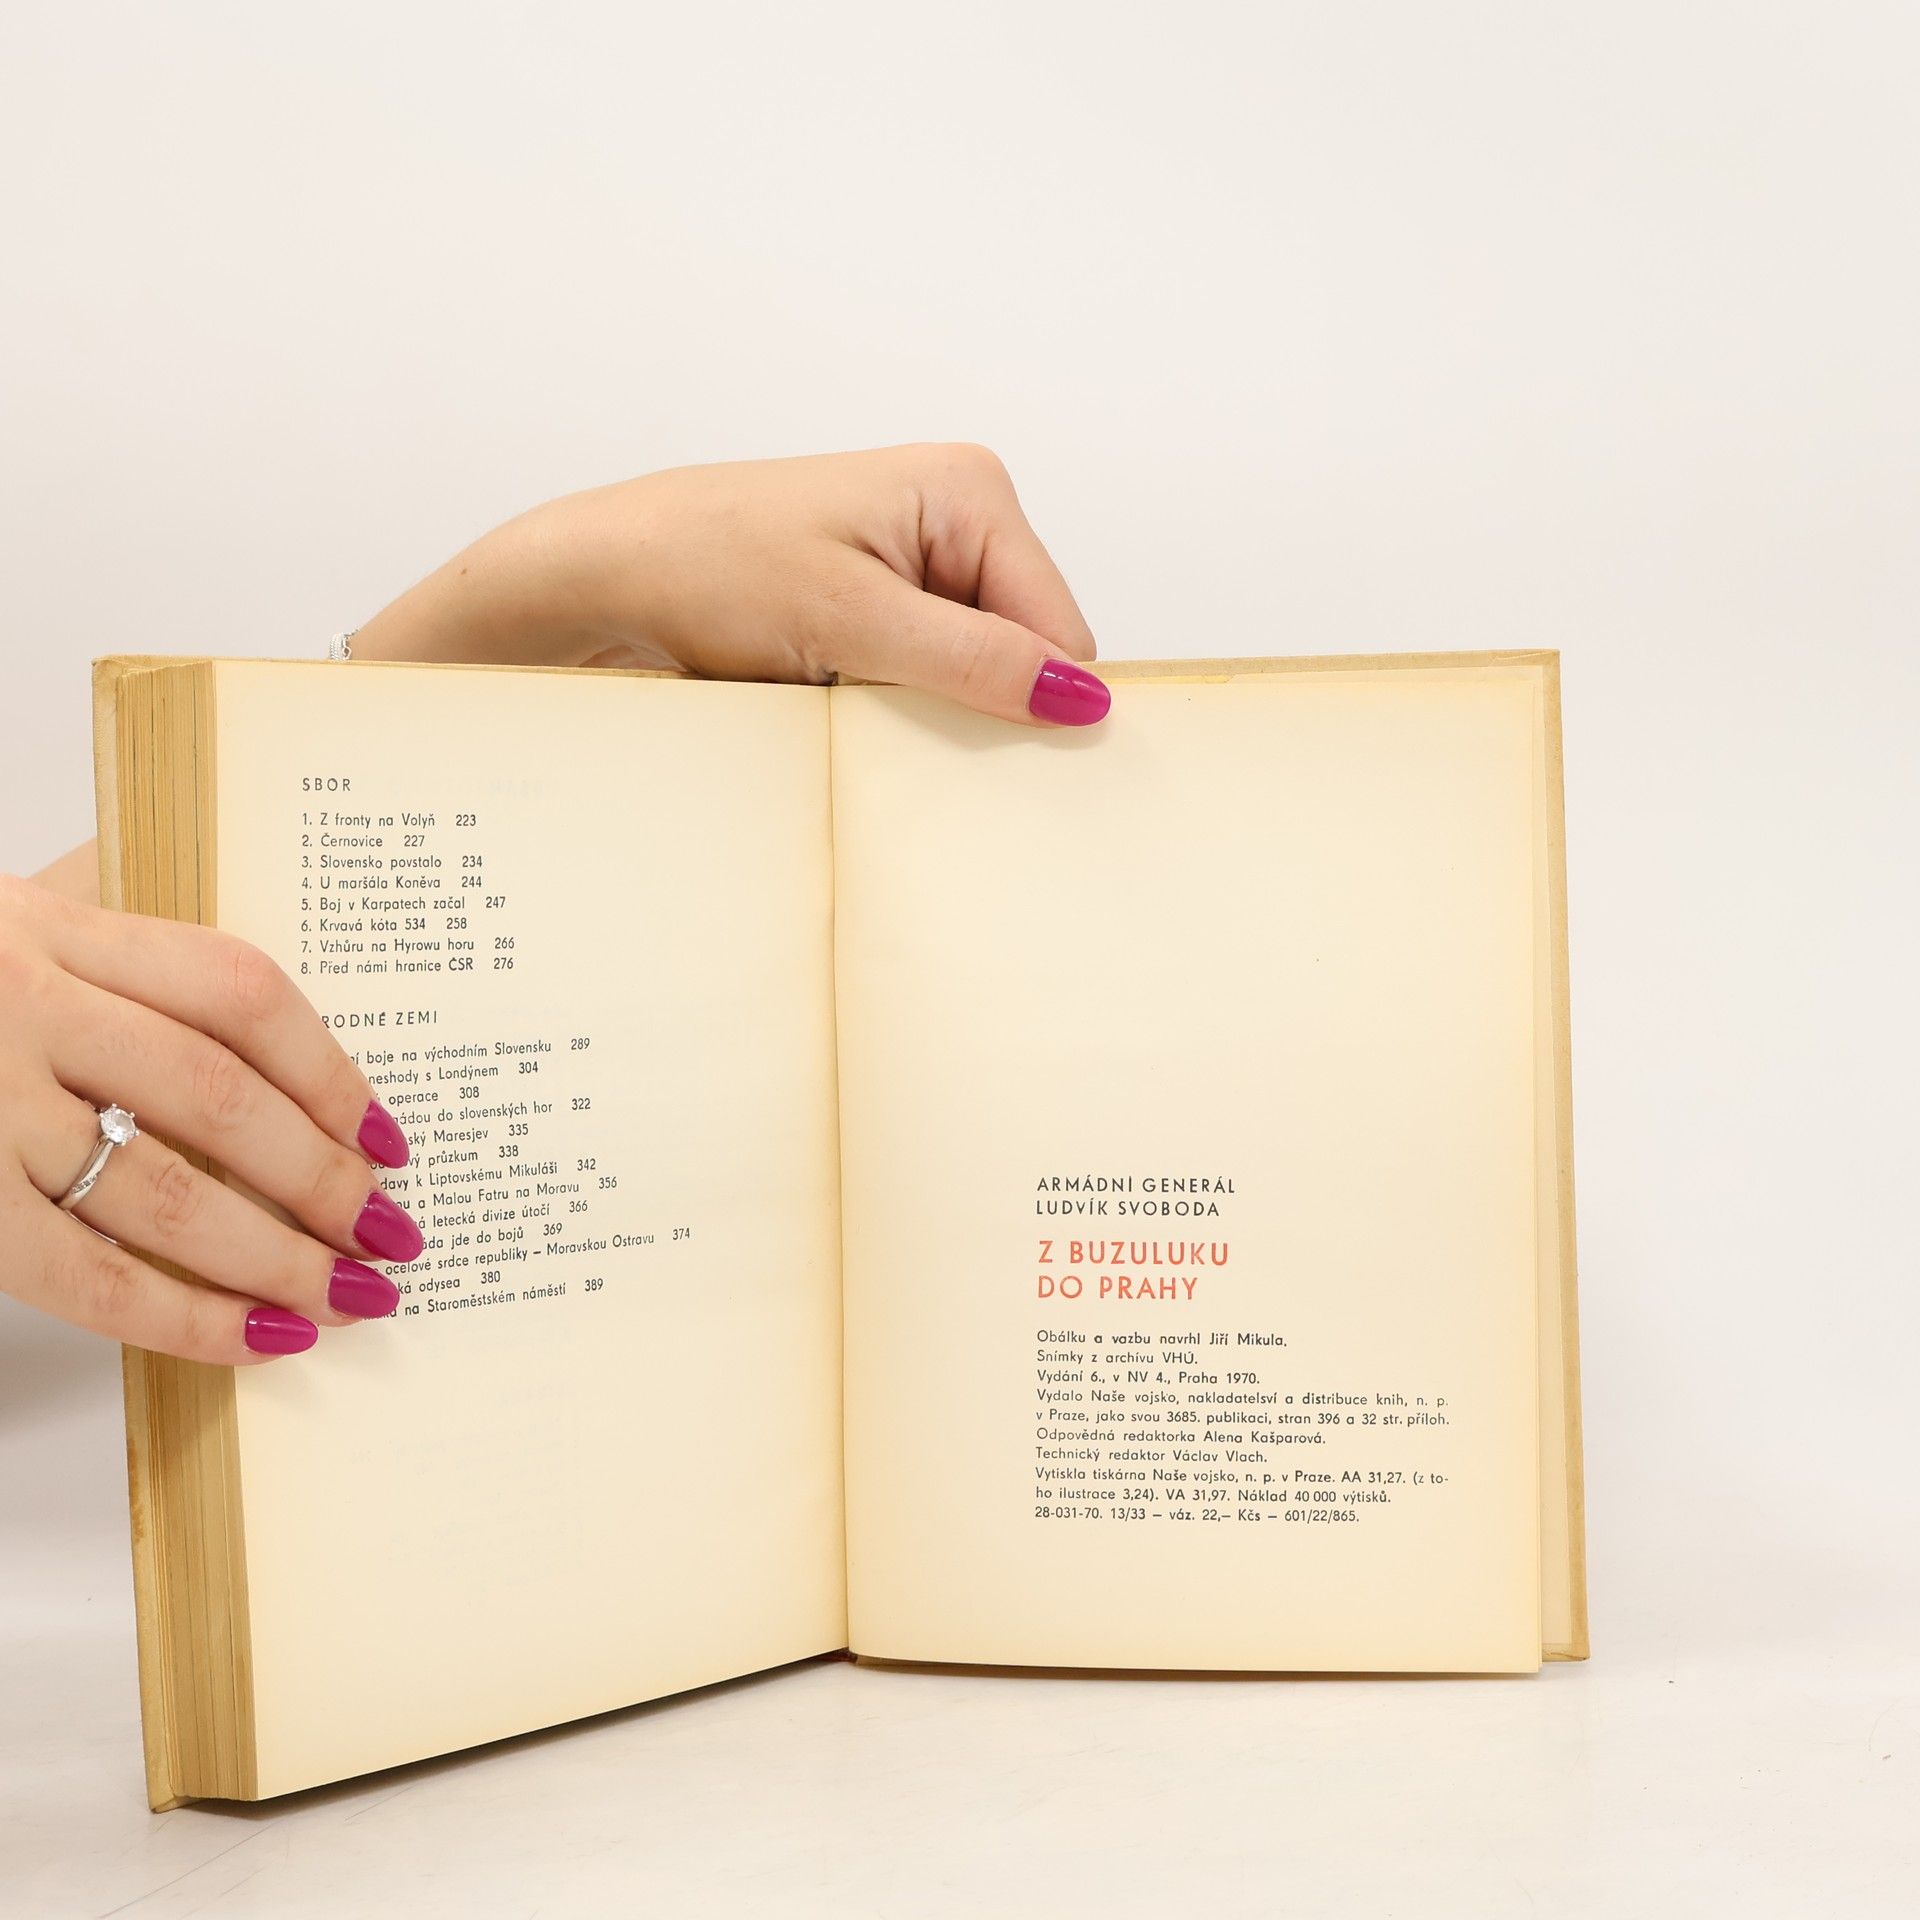 SBOR
1. Z fronty na Volyň 223
2. Černovice 227
3. Slovensko povstalo 234
4. U maršála Koněva 244
5. Boj v Karpatech začal 247
6. Krvavá kóta 534 258
7. Vzhůru na Hyrowu horu 266
8. Před námi hranice ČSR 276
RODNÉ ZEMI
boje na východním Slovensku 289
neshody s Londýnem 304
operace 308
do slovenských hor 322
Maresjev 335
průzkum 338
k Liptovskému Mikuláši 342
a Malou Fatru na Moravu 356
letecká divize útočí 366
jde do bojů 369
ocelové srdce republiky – Moravskou Ostravu 374
odysea 380
na Staroměstském náměstí 389
ARMÁDNÍ GENERÁL
LUDVÍK SVOBODA
Z BUZULUKU
DO PRAHY
Obálku a vazbu navrhl Jiří Mikula.
Snímky z archívu VHÚ.
Vydání 6., v NV 4., Praha 1970.
Vydalo Naše vojsko, nakladatelsví a distribuce knih, n. p.
v Praze, jako svou 3685. publikaci, stran 396 a 32 str. příloh.
Odpovědná redaktorka Alena Kašparová.
Technický redaktor Václav Vlach.
Vytiskla tiskárna Naše vojsko, n. p. v Praze. AA 31,27. (z to-
ho ilustrace 3,24). VA 31,97. Náklad 40 000 výtisků.
28-031-70. 13/33 – váz. 22,– Kčs – 601/22/865.